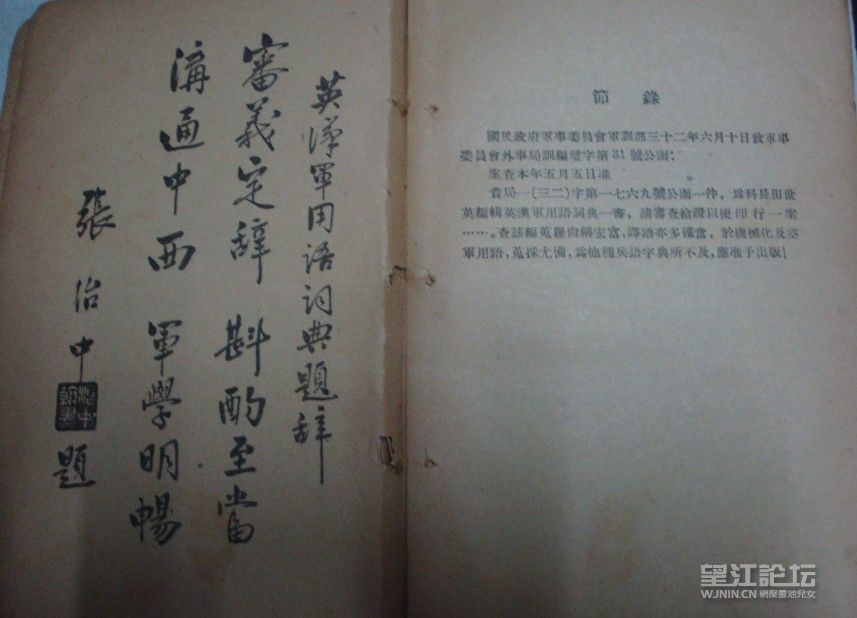 英漢軍用語詞典題辭
審義定辭 斟酌至當
溝通中西 軍學明暢
張治中 題
節錄
國民政府軍事委員會軍訓部三十二年六月十日致軍事
委員會外事局訓編壁字第31號公函:
案查本年五月五日准
貴局一(三二)字第一七六九號公函一件,為科長田世
英編輯英漢軍用語詞典一書,請審查給證以便印行一案
……。查該編蒐羅尚稱宏富,譯語亦多確當,於機械化及空
軍用語,蒐採尤備,為他種兵語字典所不及,應准予出版!
望江論坛
WJNIN.CN 網聚雷池兒女